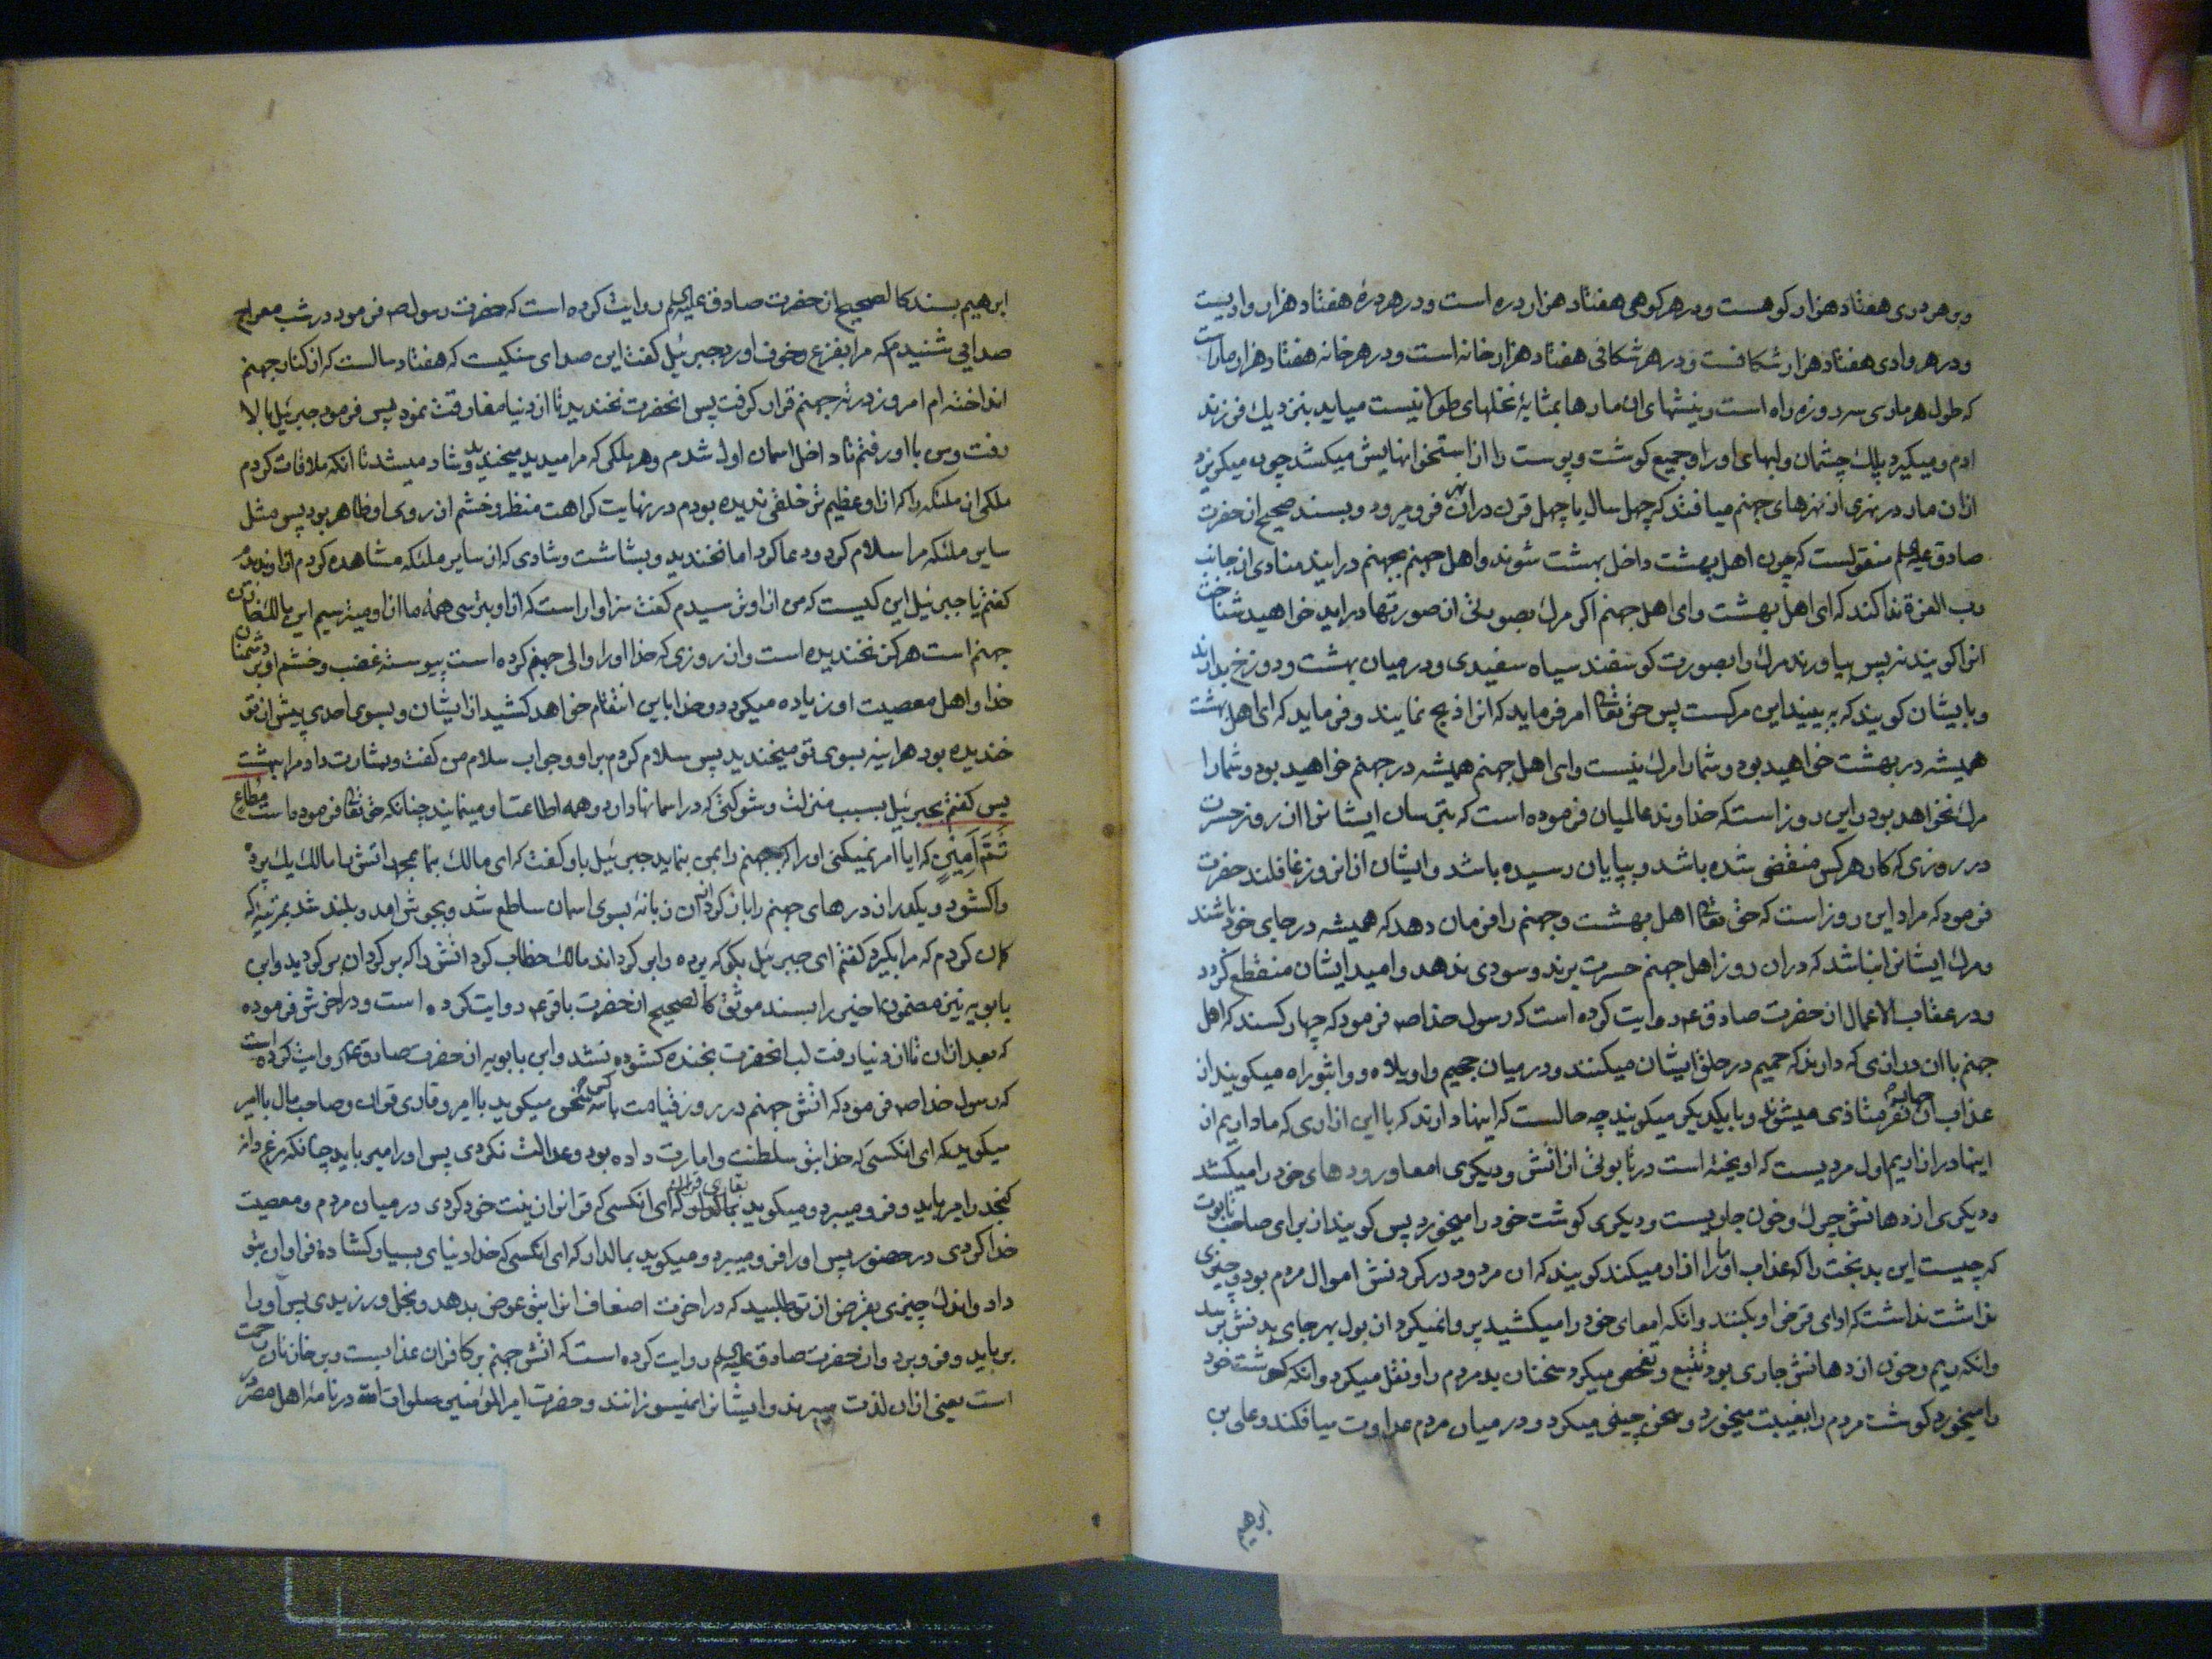 و بر هر دری هفتاد هزار کوهست و در هر کوهی هفتاد هزار دره است و در هر درهٔ هفتاد هزار وادیست
و در هر وادی هفتاد هزار شکافست و در هر شکافی هفتاد هزار خانه است و در هر خانه هفتاد هزار مار است
که طول هر ماری سه روزه راه است و نیشهای ان مارها بمثابهٔ نخلهای طولانیست میاید بنزدیك فرزند
ادم و میکیرد پلك چشمان و لبهای او را و جمیع کوشت و پوست را از استخوانهایش میکشد چون میکریزد
از ان مار در نهری از نهرهای جهنم میافتد که چهل سال یا چهل قرن در ان نهر فرو میرود و بسند صحیح از حضرت
صادق علیه السلم منقولست که چون اهل بهشت داخل بهشت شوند و اهل جهنم بجهنم درایند منادی از جانب
رب العزة ندا کند که ای اهل بهشت و ای اهل جهنم اکر مرك بصورتی از صورتها دراید خواهید شناخت
انرا کویند نه پس بیاورند مرك را بصورت کوسفند سیاه سفیدی و در میان بهشت و دوزخ بدارند
و بایشان کویند که به بینید این مرکست پس حق تعالی امر فرماید که انرا ذبح نمایند و فرماید که ای اهل بهشت
همیشه در بهشت خواهید بود و شما را مرك نیست و ای اهل جهنم همیشه در جهنم خواهید بود و شما را
مرك نخواهد بود و این روز است که خداوند عالمیان فرموده است که بترسان ایشانرا از روز حسرت
در روزی که کار هرکس منقضی شده باشد و بپایان رسیده باشد و ایشان از انروز غافلند حضرت
فرمود که مراد این روز است که حق تعالی اهل بهشت و جهنم را فرمان دهد که همیشه در جای خود باشند
و مرك ایشانرا نباشد که در ان روز اهل جهنم حسرت برند و سودی ندهد و امید ایشان منقطع کردد
و در عقاب الاعمال از حضرت صادق ع روایت کرده است که رسول خدا ص فرمود که چهار کسند که اهل
جهنم با ان ازاری که دارند که حمیم در حلق ایشان میکنند و در میان جحیم واویلاه و واثبوراه میکویند از
عذاب ان چهار نفر متاذی میشوند و با یکدیکر میکویند چه حالست که اینها دارند که با این ازاری که ما داریم از
اینها در ازاریم اول مردیست که اویخته است در تابوتی از اتش و دیکری امعا و رودهای خود را میکشد
و دیکری از دهانش چرك و خون جاریست و دیکری کوشت خود را میخورد پس کویند از برای صاحب تابوت
که چیست این بدبخت را که عذاب او ما را ازار میکند کویند که ان مردود در کردنش اموال مردم بود و چیزی
نداشت نداشت که ادای قرض او بکنند و انکه امعای خود را میکشید پروا نمیکرد از بول بهر جای بدنش برسد
و انکه ریم و خون از دهانش جاری بود تتبع و تفحص میکرد سخنان بد مردم را و نقل میکرد و انکه کوشت خود
را میخورد کوشت مردم را بغیبت میخورد و سخن چینی میکرد و در میان مردم عداوت میافکند و علی بن
ابرهیم
ابرهیم بسند کالصحیح از حضرت صادق علیه السلم روایت کرده است که حضرت رسول ص فرمود در شب معراج
صدایی شنیدم که مرا بفزع و خوف اورد جبرئیل کفت این صدای سنکیست که هفتاد سالست که از کنار جهنم
انداخته‌ام امروز در ته جهنم قرار کرفت پس انحضرت نخندید تا از دنیا مفارقت نمود پس فرمود جبرئیل بالا
رفت و من با او رفتم تا داخل اسمان اول شدم و هر ملکی که مرا میدید میخندید و شاد میشد تا انکه ملاقات کردم
ملکی از ملئکه را که از او عظیم تر خلقی ندیده بودم در نهایت کراهت منظر و خشم از روی او ظاهر بود پس مثل
سایر ملئکه مرا سلام کرد و دعا کرد اما نخندید و بشاشت و شادی که از سایر ملئکه مشاهده کردم از او ندیدم
کفتم یا جبرئیل این کیست که من از او ترسیدم کفت سزاوار است که از او بترسی همهٔ ما از او میترسیم این مالك خازن
جهنم است هرکز نخندیده است و از روزی که خدا او را والی جهنم کرده است پیوسته غضب و خشم او بر دشمنان
خدا و اهل معصیت او زیاده میکردد و خدا باین انتقام خواهد کشید از ایشان و بسوی احدی پیش از تو
خندیده بود هراینه بسوی تو میخندید پس سلام کردم بر او و جواب سلام من کفت و بشارت داد مرا ببهشت
پس کفتم بجبرئیل بسبب منزلت و شوکتی که در اسمانها دارد و همه اطاعت او مینمایند چنانکه حق تعالی فرموده است مطاع
ثم امین که ایا امر نمیکنی او را که جهنم را بمن بنماید جبرئیل باو کفت که ای مالك بنما بمحمد اتش را مالك یك پرده
را کشود و یکدر از درهای جهنم را باز کرد از ان زبانهٔ بسوی اسمان ساطع شد و بجوش امد و بلند شد بمرتبهٔ که
کمان کردم که مرا بکیرد کفتم ای جبرئیل بکو که پرده را بر کرداند مالك خطاب کرد اتش را که برکرد ان برکردید و ابن
بابویه نیز مضمون اخیر را بسند موثق کالصحیح از حضرت باقر ع روایت کرده است و در اخرش فرموده
که بعد از ان تا از دنیا رفت لب انحضرت بخنده کشوده نشد و ابن بابویه از حضرت صادق ع روایت کرده است
که رسول خدا ص فرمود که اتش جهنم در روز قیامت با سه کس سخن میکوید با امیر و قاری قران و صاحب مال با امیر
میکوید که ای انکسی که خدا بتو سلطنت و امارت داده بود و عدالت نکردی پس او را میرباید چنانکه مرغ دانه
کنجد را میرباید و فرو میبرد و میکوید بقاری قران که ای انکسی که قرانرا زینت خود کردی در میان مردم و معصیت
خدا کردی در حضور پس او را فرو میبرد و میکوید بمالدار که ای انکسی که خدا دنیای بسیار کشادهٔ فراوان بتو
داد و اندك چیزی بقرض از تو طلبید که در اخرت اضعاف انرا بتو عوض بدهد و بخل ورزیدی پس او را
برباید و فرو برد و از حضرت صادق علیه السلم روایت کرده است که اتش جهنم بر کافران عذابست و بر خازنان رحمت
است یعنی از ان لذت میبرند و ایشانرا نمیسوزانند و حضرت امیرالمؤمنین صلوات الله در نامهٔ اهل مصر